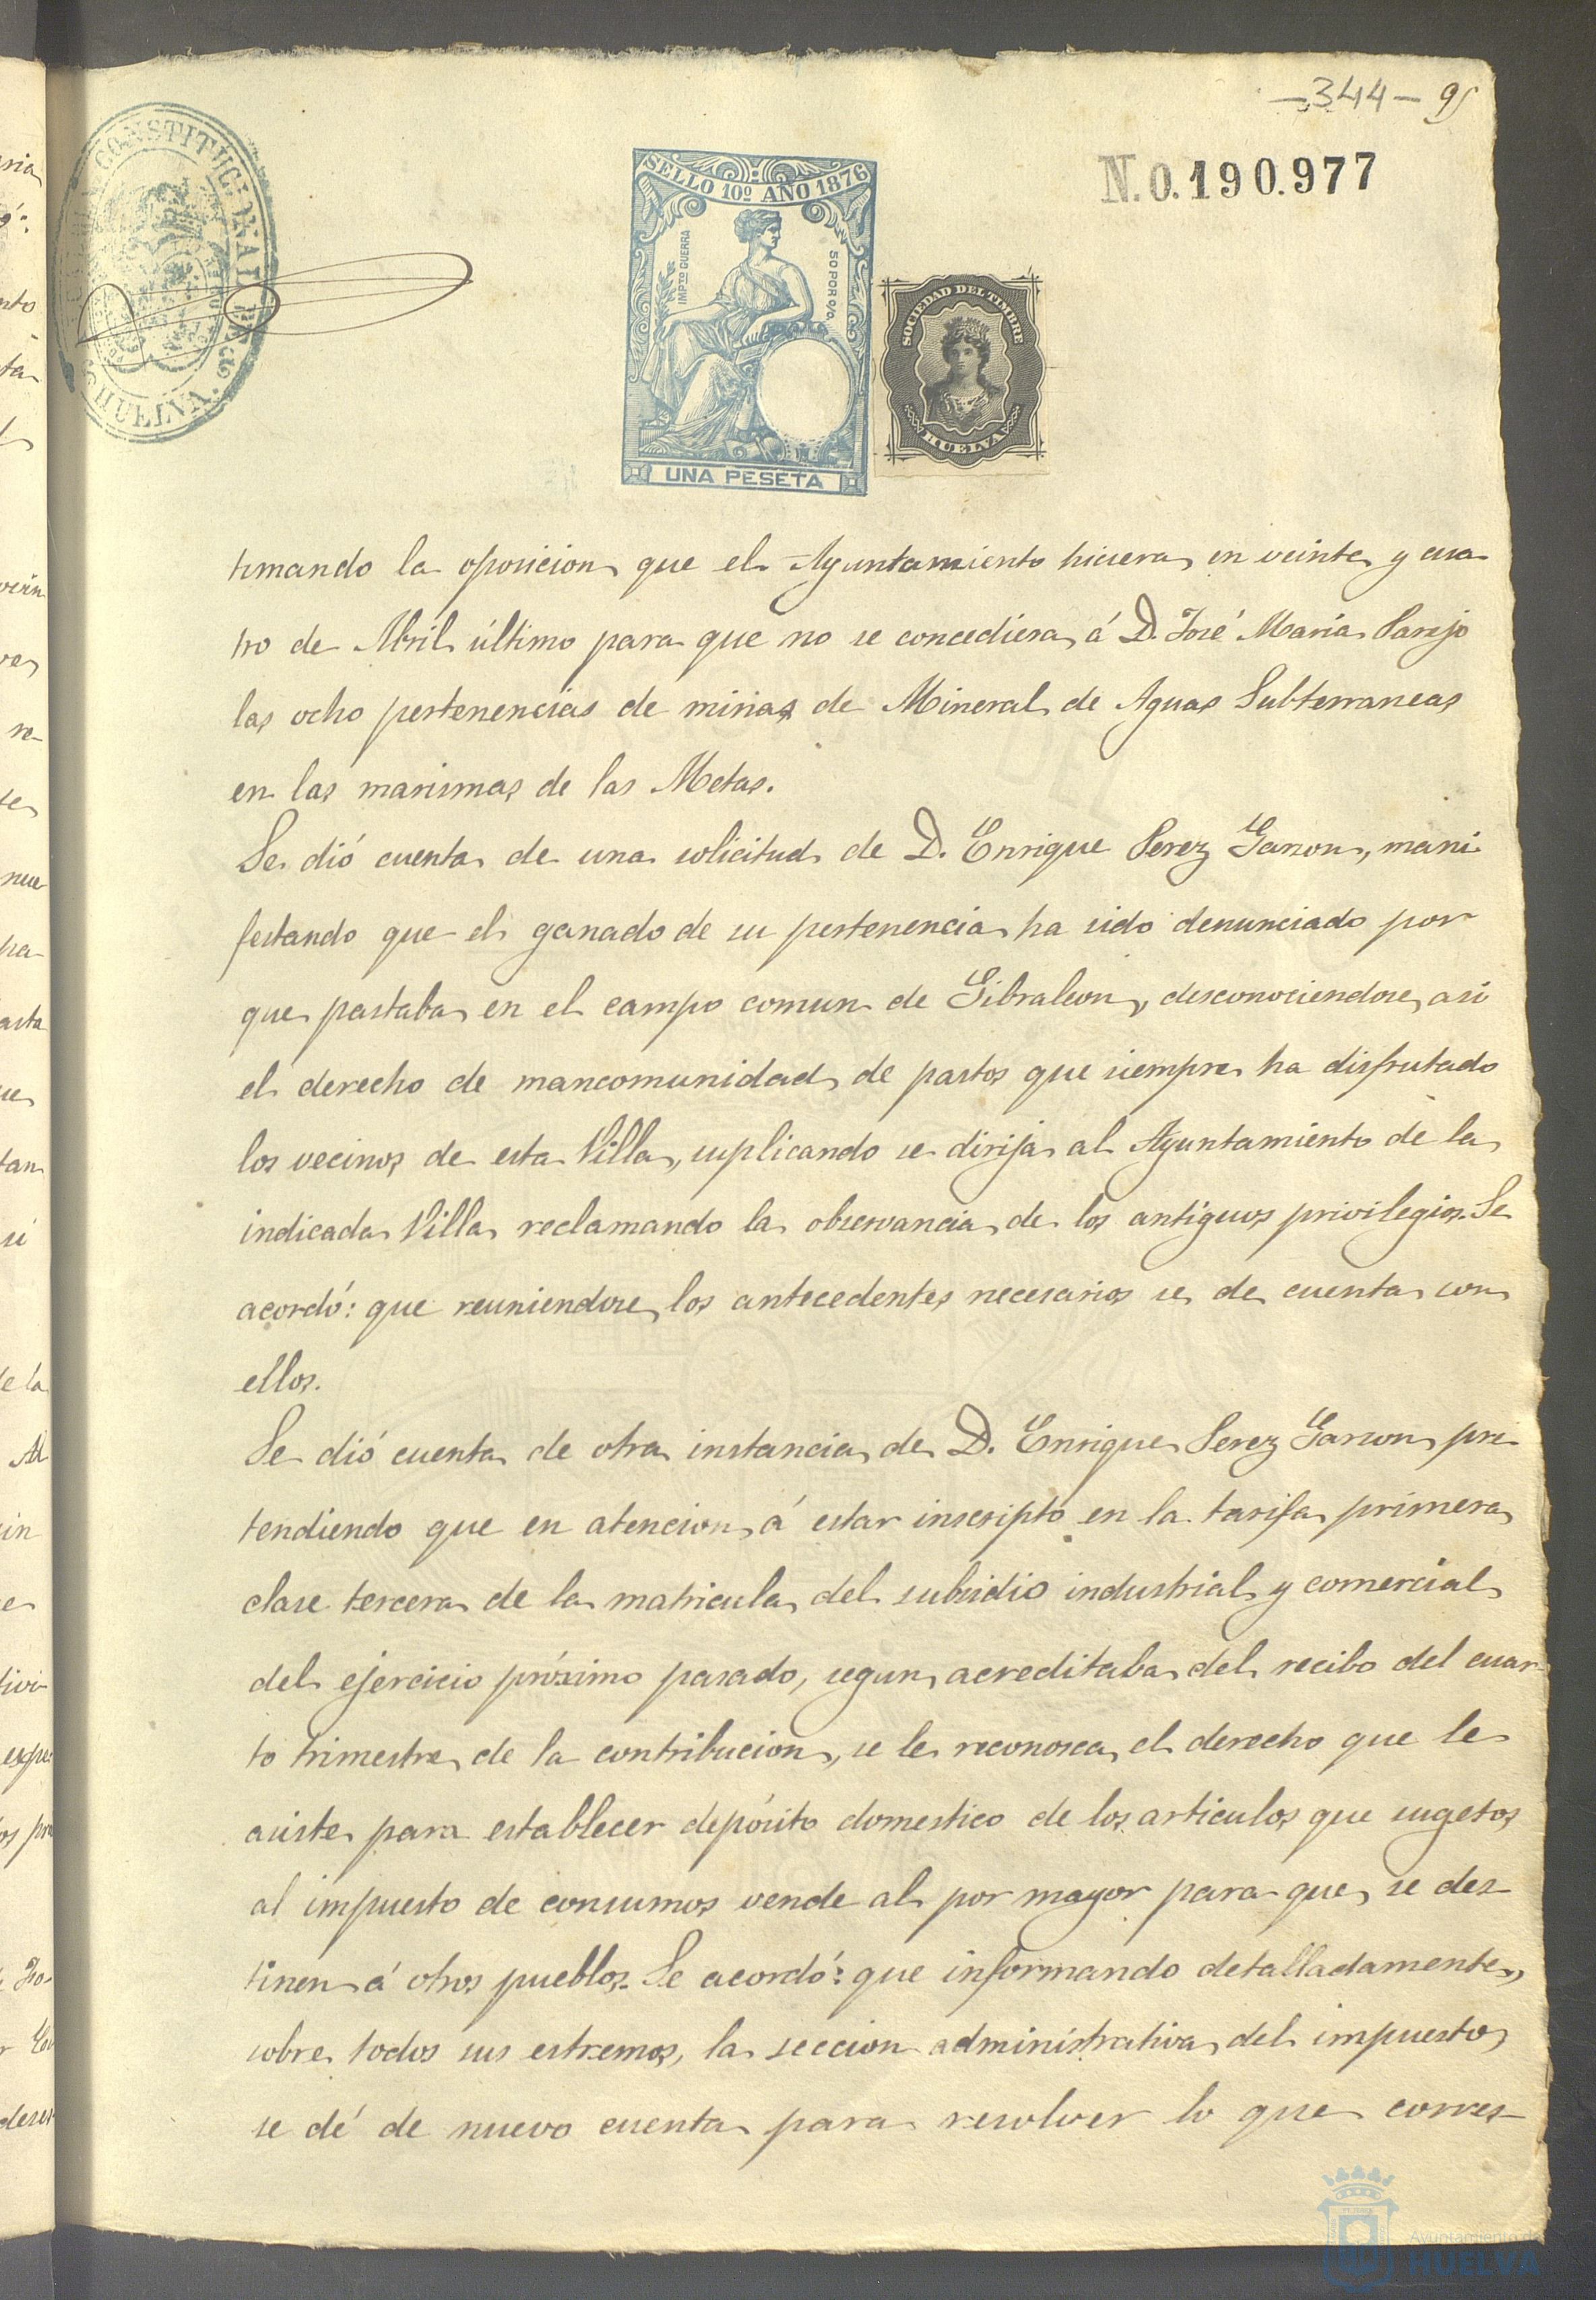 -344- 95
N.0.190.977
CONSTITUCIONAL DE
HUELVA.
SELLO 10º AÑO 1876
IMPTO GUERRA
50 POR 0/0.
UNA PESETA
SOCIEDAD DEL TIMBRE
HUELVA
timando la oposicion que el Ayuntamiento hiciera en veinte y cua
tro de Abril último para que no se concediera á D. José Maria Parejo
las ocho pertenencias de minas de Mineral de Aguas Subterraneas
en las marismas de las Metas.
Se dió cuenta de una solicitud de D. Enrique Perez Garzon, mani
festando que el ganado de su pertenencia ha sido denunciado por
que pastaba en el campo comun de Gibraleon, desconociendose asi
el derecho de mancomunidad de pastos que siempre ha disfrutado
los vecinos de esta Villa, suplicando se dirija al Ayuntamiento de la
indicada Villa reclamando la observancia de los antiguos privilegios. Se
acordó: que reuniendose los antecedentes necesarios se de cuenta con
ellos.
Se dió cuenta de otra instancia de D. Enrique Perez Garzon pre
tendiendo que en atencion á estar inscripto en la tarifa primera
clase tercera de la matricula del subsidio industrial y comercial
del ejercicio próximo pasado, segun acreditaba del recibo del cuar
to trimestre de la contribucion, se le reconosca el derecho que le
asiste para establecer depósito domestico de los articulos que sugetos
al impuesto de consumos vende al por mayor para que se des-
tinen á otros pueblos. Se acordó: que informando detalladamente,
sobre todos sus estremos, la seccion administrativa del impuesto,
se dé de nuevo cuenta para resolver lo que corres-
Ayuntamiento de
HUELVA